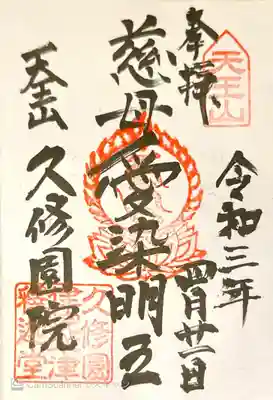 奉拝
天王山
令和三年
四月廿一日
慈母愛染明王
天王山
久修園院
久修園